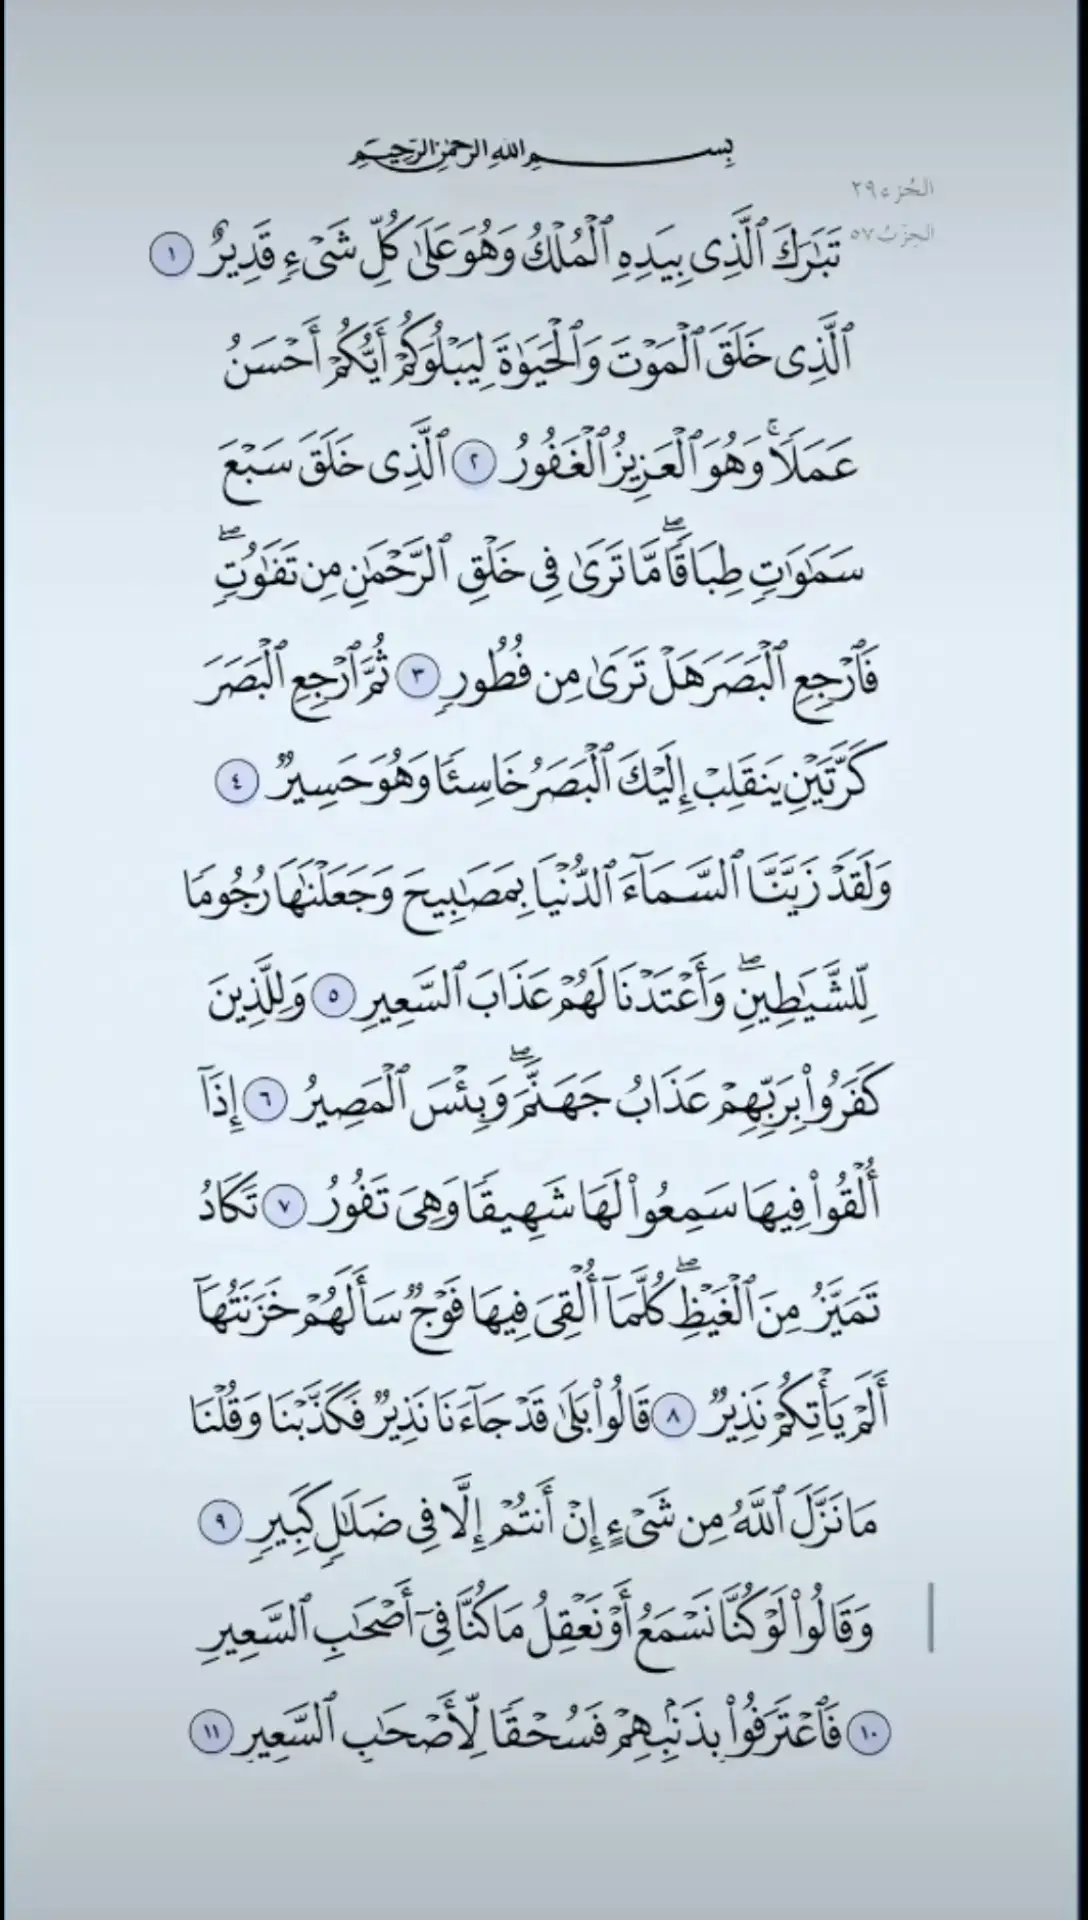 بِسْمِ اللَّهِ الرَّحْمَٰنِ الرَّحِيمِ
الجُزء ٢٩
الحِزْبُ ٥٧
تَبَٰرَكَ ٱلَّذِى بِيَدِهِ ٱلْمُلْكُ وَهُوَ عَلَىٰ كُلِّ شَىْءٍ قَدِيرٌ ١
ٱلَّذِى خَلَقَ ٱلْمَوْتَ وَٱلْحَيَوٰةَ لِيَبْلُوَكُمْ أَيُّكُمْ أَحْسَنُ
عَمَلًا ۚ وَهُوَ ٱلْعَزِيزُ ٱلْغَفُورُ ٢ ٱلَّذِى خَلَقَ سَبْعَ
سَمَٰوَٰتٍ طِبَاقًا ۖ مَّا تَرَىٰ فِى خَلْقِ ٱلرَّحْمَٰنِ مِن تَفَٰوُتٍ ۖ
فَٱرْجِعِ ٱلْبَصَرَ هَلْ تَرَىٰ مِن فُطُورٍ ٣ ثُمَّ ٱرْجِعِ ٱلْبَصَرَ
كَرَّتَيْنِ يَنقَلِبْ إِلَيْكَ ٱلْبَصَرُ خَاسِئًا وَهُوَ حَسِيرٌ ٤
وَلَقَدْ زَيَّنَّا ٱلسَّمَآءَ ٱلدُّنْيَا بِمَصَٰبِيحَ وَجَعَلْنَٰهَا رُجُومًا
لِّلشَّيَٰطِينِ ۖ وَأَعْتَدْنَا لَهُمْ عَذَابَ ٱلسَّعِيرِ ٥ وَلِلَّذِينَ
كَفَرُوا۟ بِرَبِّهِمْ عَذَابُ جَهَنَّمَ ۖ وَبِئْسَ ٱلْمَصِيرُ ٦ إِذَآ
أُلْقُوا۟ فِيهَا سَمِعُوا۟ لَهَا شَهِيقًا وَهِىَ تَفُورُ ٧ تَكَادُ
تَمَيَّزُ مِنَ ٱلْغَيْظِ ۖ كُلَّمَآ أُلْقِىَ فِيهَا فَوْجٌ سَأَلَهُمْ خَزَنَتُهَآ
أَلَمْ يَأْتِكُمْ نَذِيرٌ ٨ قَالُوا۟ بَلَىٰ قَدْ جَآءَنَا نَذِيرٌ فَكَذَّبْنَا وَقُلْنَا
مَا نَزَّلَ ٱللَّهُ مِن شَىْءٍ إِنْ أَنتُمْ إِلَّا فِى ضَلَٰلٍ كَبِيرٍ ٩
وَقَالُوا۟ لَوْ كُنَّا نَسْمَعُ أَوْ نَعْقِلُ مَا كُنَّا فِىٓ أَصْحَٰبِ ٱلسَّعِيرِ
١٠ فَٱعْتَرَفُوا۟ بِذَنۢبِهِمْ فَسُحْقًا لِّأَصْحَٰبِ ٱلسَّعِيرِ ١١